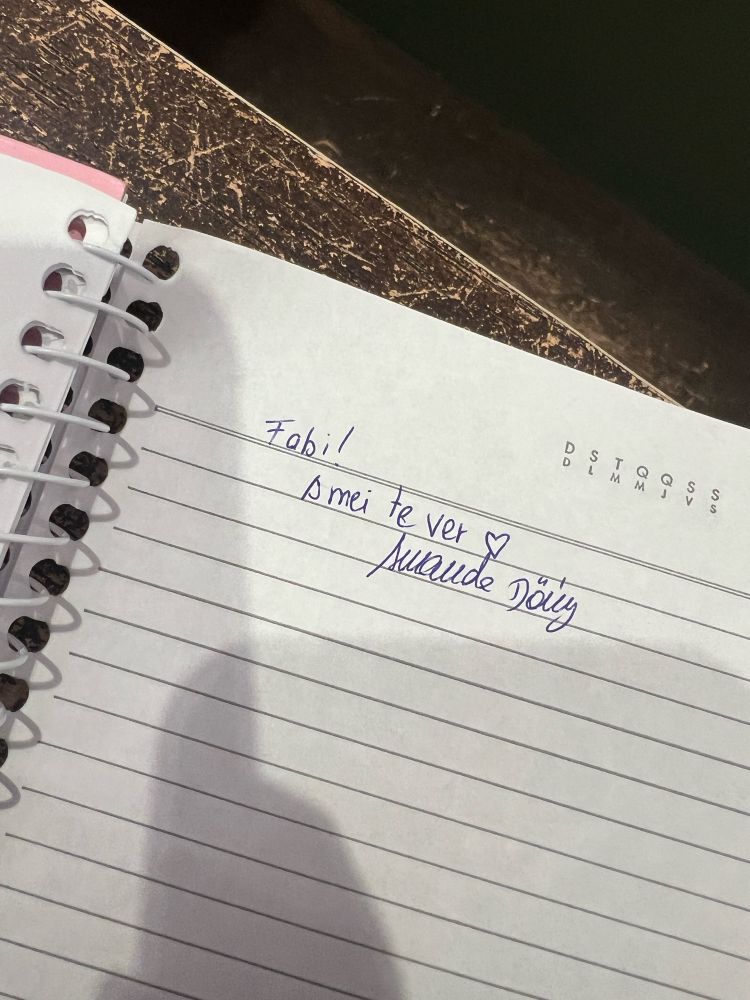 D S T Q Q S S
D L M M J V S
Fabi!
Amei te ver ♡
Amanda Döring